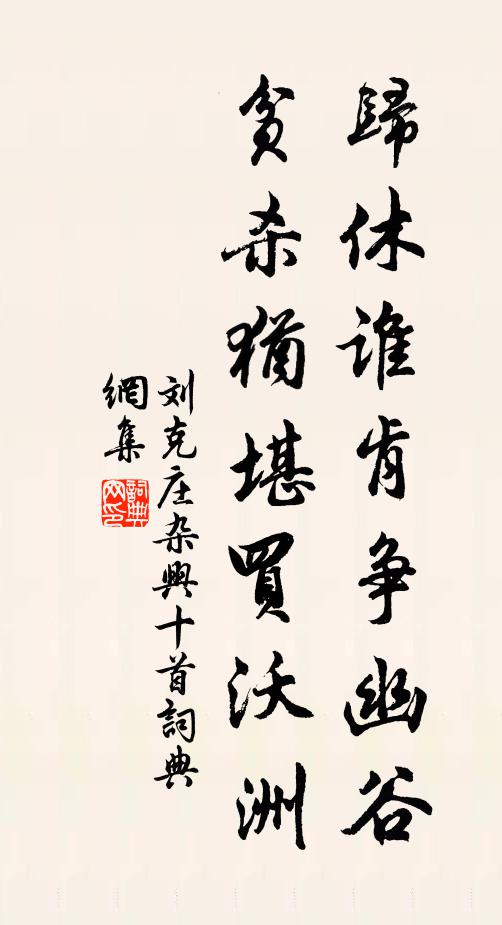 歸休誰肯争幽谷
贫杀猶堪買沃洲
刘克庄杂興十首詞典
網集
詞典
网印